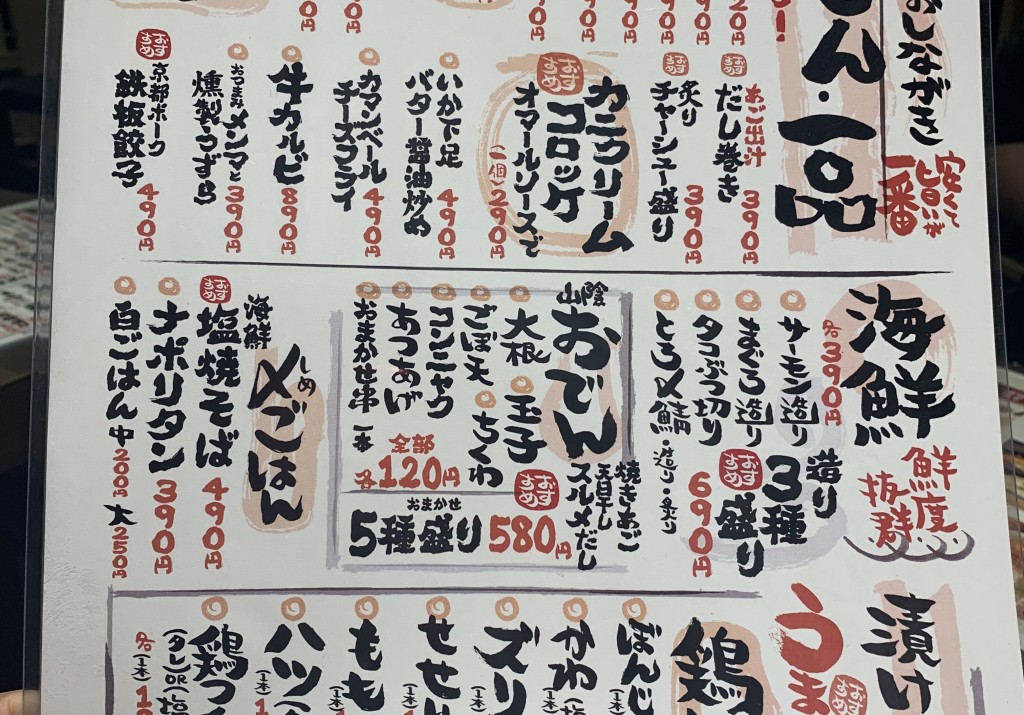 おしながき
安くて
旨いが
一番
一品
おすすめ
あご出汁
だし巻き
390円
おすすめ
炙り
チャーシュー盛り
390円
おすすめ
カニクリーム
コロッケ
オマールソースで
(一個)290円
いか下足
バター醤油炒め
490円
カマンベール
チーズフライ
490円
牛カルビ
890円
おつまみメンマと
燻製うずら
390円
おすすめ
京都ポーク
鉄板餃子
490円
海鮮
鮮度
抜群
各390円
サーモン造り
まぐろ造り
タコぶつ切り
とろ〆鯖・造り・炙り
造り
3種
盛り
おすすめ
690円
山陰
おでん
焼きあご
スルメだし
大根
玉子
ごぼ天
ちくわ
コンニャク
あつあげ
おまかせ串 一本
全部
各120円
おすすめ
おまかせ
5種盛り 580円
しめ
〆ごはん
海鮮
おすすめ
塩焼そば
490円
ナポリタン
390円
白ごはん 中200円 大250円
漬け
うま
おすすめ
鶏
ぼんじ
かわ
ズリ
(1本)
せせ
(1本)
もも
(1本)
ハツ
(1本)
鶏つ
(タレ)OR(塩
各(1本)